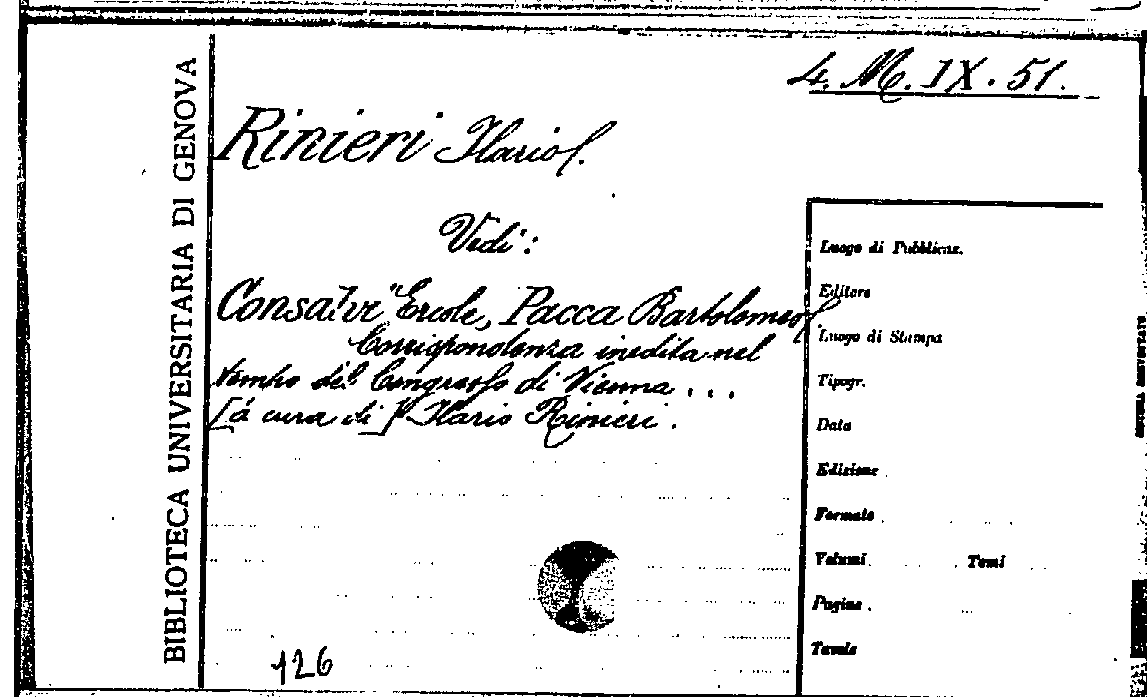 4. M. IX. 51.
BIBLIOTECA UNIVERSITARIA DI GENOVA
Rinieri Ilario.
Vedi:
Consalvi Ercole, Pacca Bartolomeo
Corrispondenza inedita nel
tempo del Congresso di Vienna ...
[a cura di] P. Ilario Rinieri.
126
Luogo di Pubblicaz.
Editore
Luogo di Stampa
Tipogr.
Data
Edizione
Formato
Volumi Tomi
Pagine
Tavole